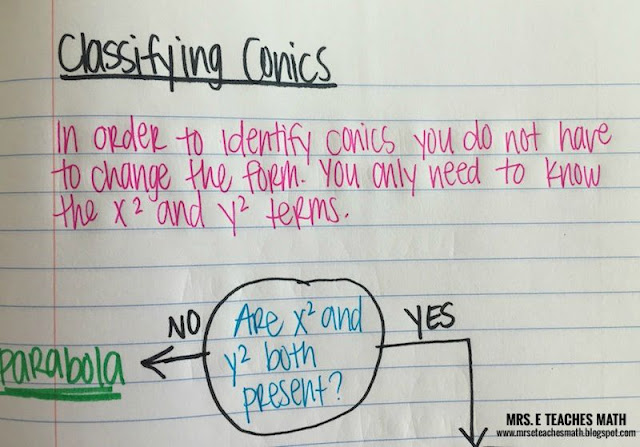 Classifying Conics
In order to identify conics you do not have
to change the form. You only need to know
the x² and y² terms.
NO
Are x² and
y² both
present?
YES
Parabola
MRS. E TEACHES MATH
www.mrseteachesmath.blogspot.com